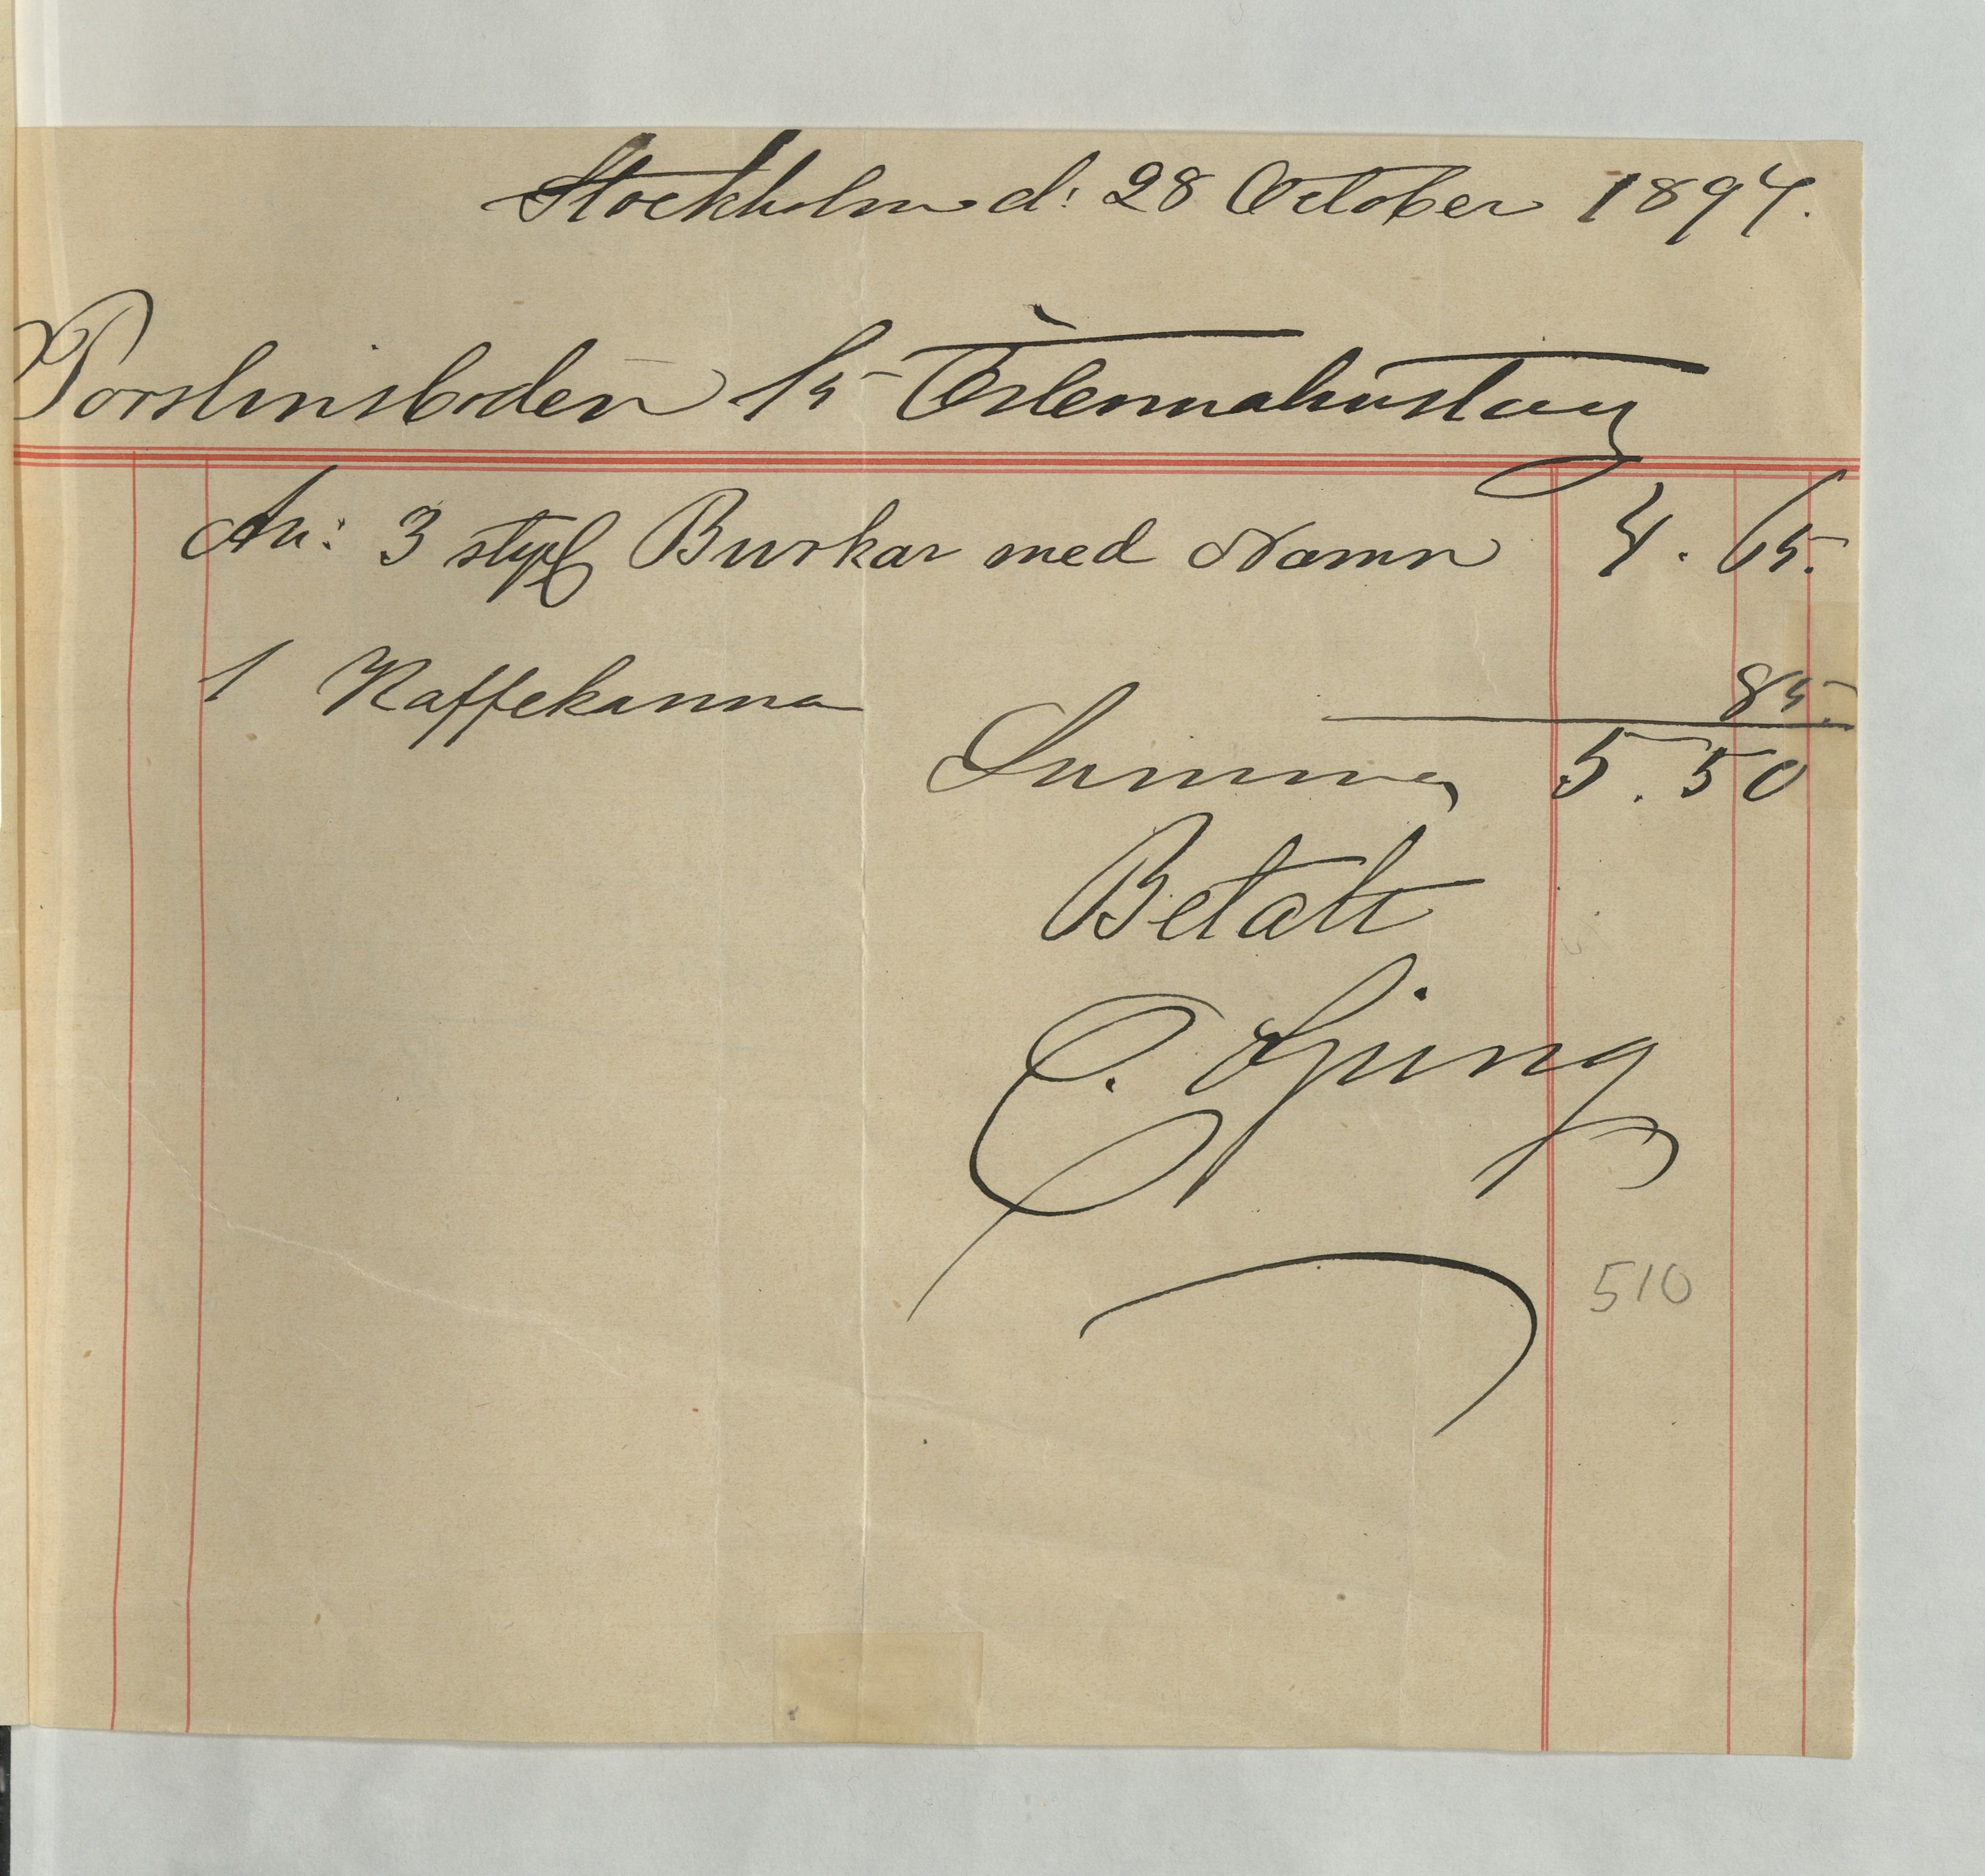 Stockholm d: 28 October 1894.
Porslinsboden 15 Östermalmstorg
An: 3 styck Burkar med Namn 4.65.
1 Kaffekanna 85.
Summa 5.50
Betalt
C. Ljung
510